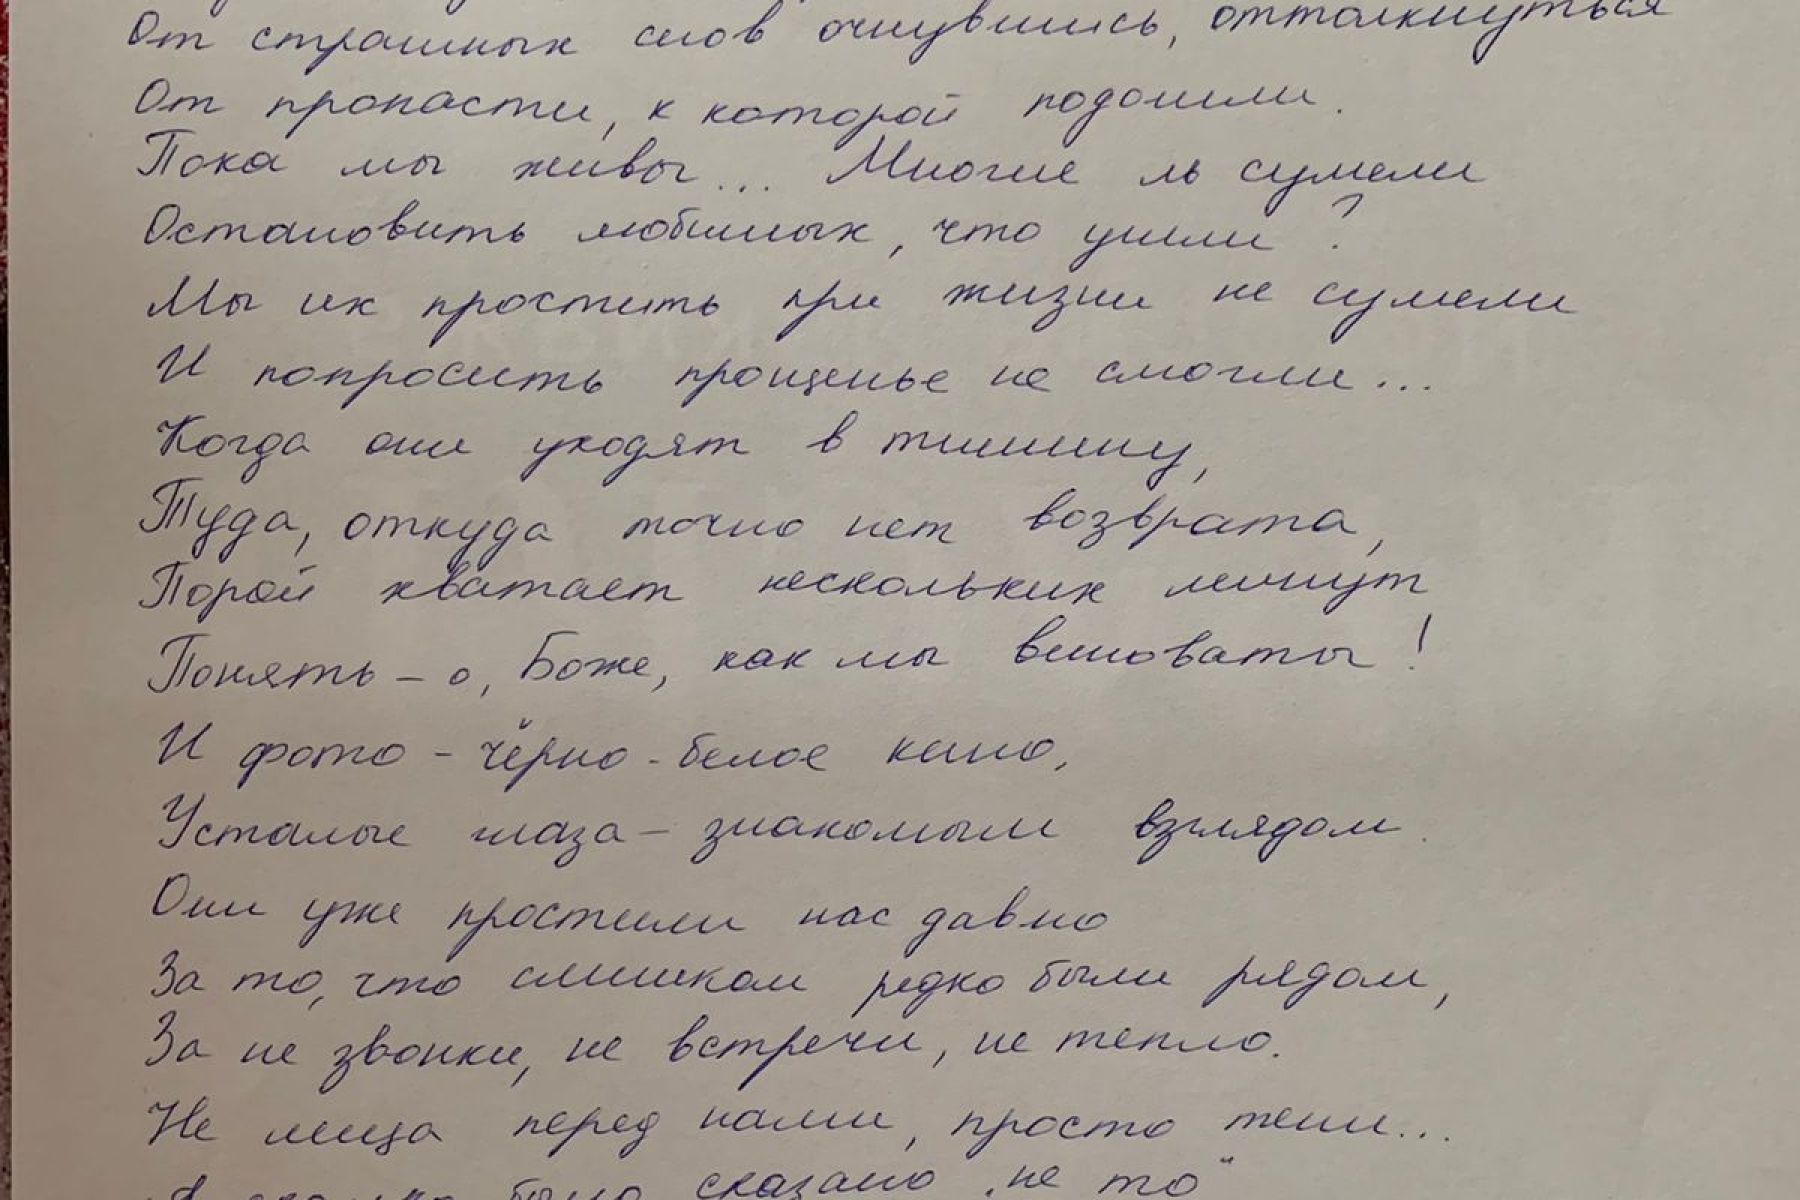 От страшных снов очнувшись, оттолкнуться
От пропасти, к которой подошли.
Пока мы живы... Многие ль сумели
Остановить любимых, что ушли?
Мы их простить при жизни не сумели
И попросить прощенье не смогли...
Когда они уходят в тишину,
Туда, откуда точно нет возврата,
Порой хватает нескольких минут
Понять – о, Боже, как мы виноваты!
И фото - чёрно-белое кино,
Усталые глаза – знакомым взглядом.
Они уже простили нас давно
За то, что слишком редко были рядом,
За не звонки, не встречи, не тепло.
Не лица перед нами, просто тени...
А сколько было сказано „не то"